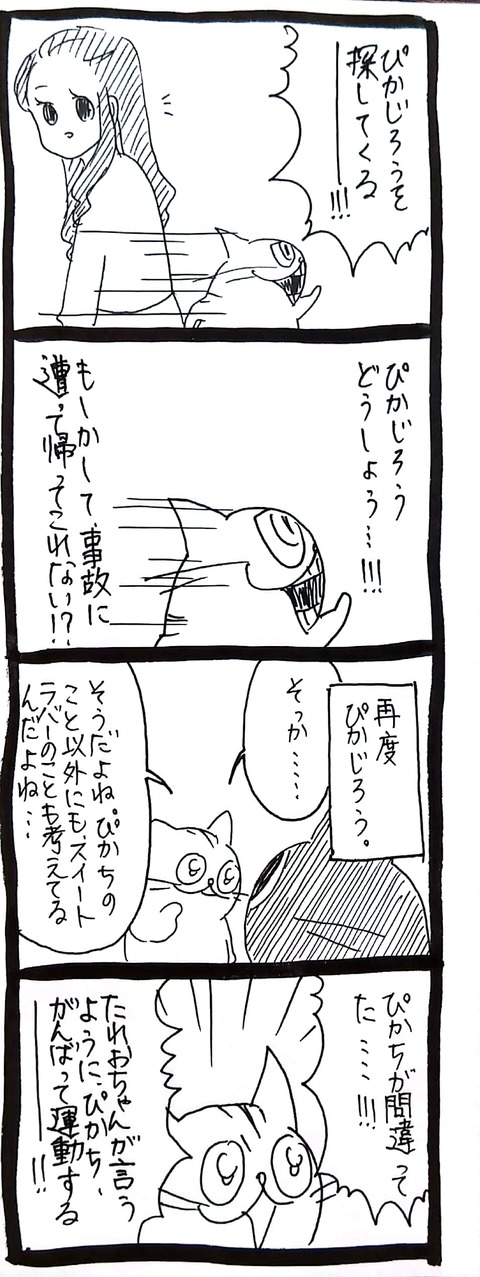 ぴかじろうを
探してくる
━━━!!!
ぴかじろう
どうしよう…!!!
もしかして、事故に
遭って帰ってこれない!?
再度
ぴかじろう。
そっか……
そうだよね、ぴかちの
こと以外にも、スイート
ラバーのことも考えてる
んだよね…
ぴかちが間違って
た……!!!
たれおちゃんが言う
ように、ぴかち、
がんばって運動する
━━━!!